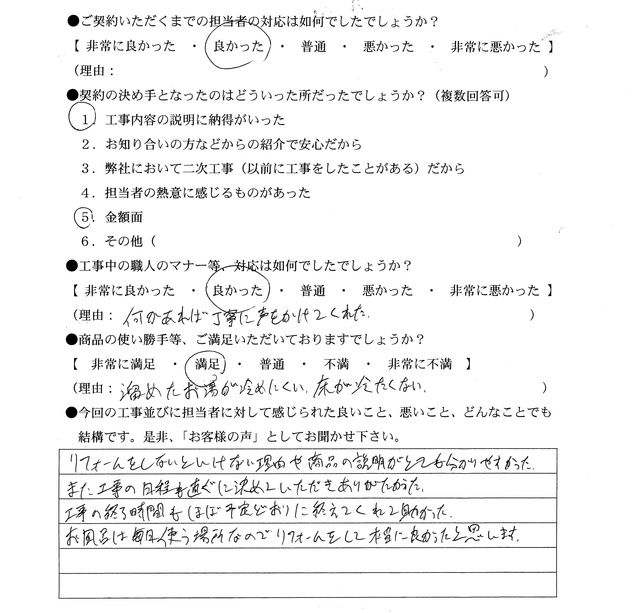 ●ご契約いただくまでの担当者の対応は如何でしたでしょうか？
【 非常に良かった ・ 良かった ・ 普通 ・ 悪かった ・ 非常に悪かった 】
（理由： ）
●契約の決め手となったのはどういった所だったでしょうか？（複数回答可）
1．工事内容の説明に納得がいった
2．お知り合いの方などからの紹介で安心だから
3．弊社において二次工事（以前に工事をしたことがある）だから
4．担当者の熱意に感じるものがあった
5．金額面
6．その他（ ）
●工事中の職人のマナー等、対応は如何でしたでしょうか？
【 非常に良かった ・ 良かった ・ 普通 ・ 悪かった ・ 非常に悪かった 】
（理由：何かあれば丁寧に声をかけてくれた. ）
●商品の使い勝手等、ご満足いただいておりますでしょうか？
【 非常に満足 ・ 満足 ・ 普通 ・ 不満 ・ 非常に不満 】
（理由：溜めたお湯が冷めにくい. 床が冷たくない. ）
●今回の工事並びに担当者に対して感じられた良いこと、悪いこと、どんなことでも
結構です。是非、「お客様の声」としてお聞かせ下さい。
リフォームをしないといけない理由や商品の説明がとても分かりやすかった.
また工事の日程も直ぐに決めていただきありがたかった.
工事の終了時間もほぼ予定どおりに終えてくれて助かった.
お風呂は毎日使う場所なのでリフォームをして本当に良かったと思います.